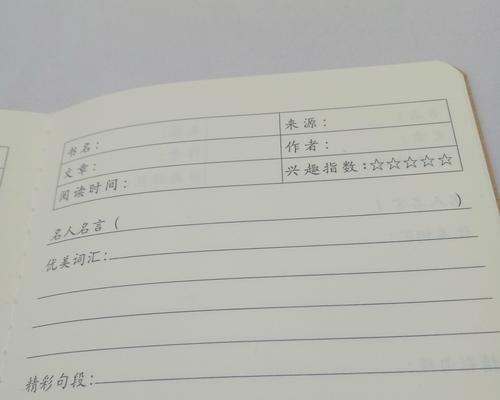 书名：
来源：
文章：
作者：
阅读时间：
兴趣指数：☆☆☆☆☆
名人名言（ ）
优美词汇：
精彩句段：